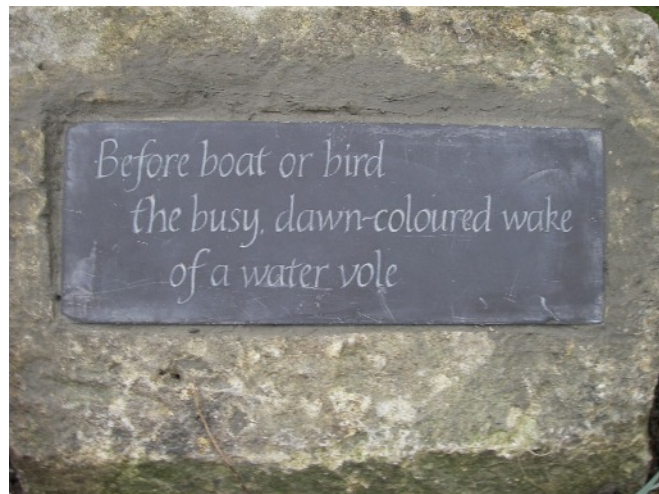 Before boat or bird
the busy, dawn-coloured wake
of a water vole